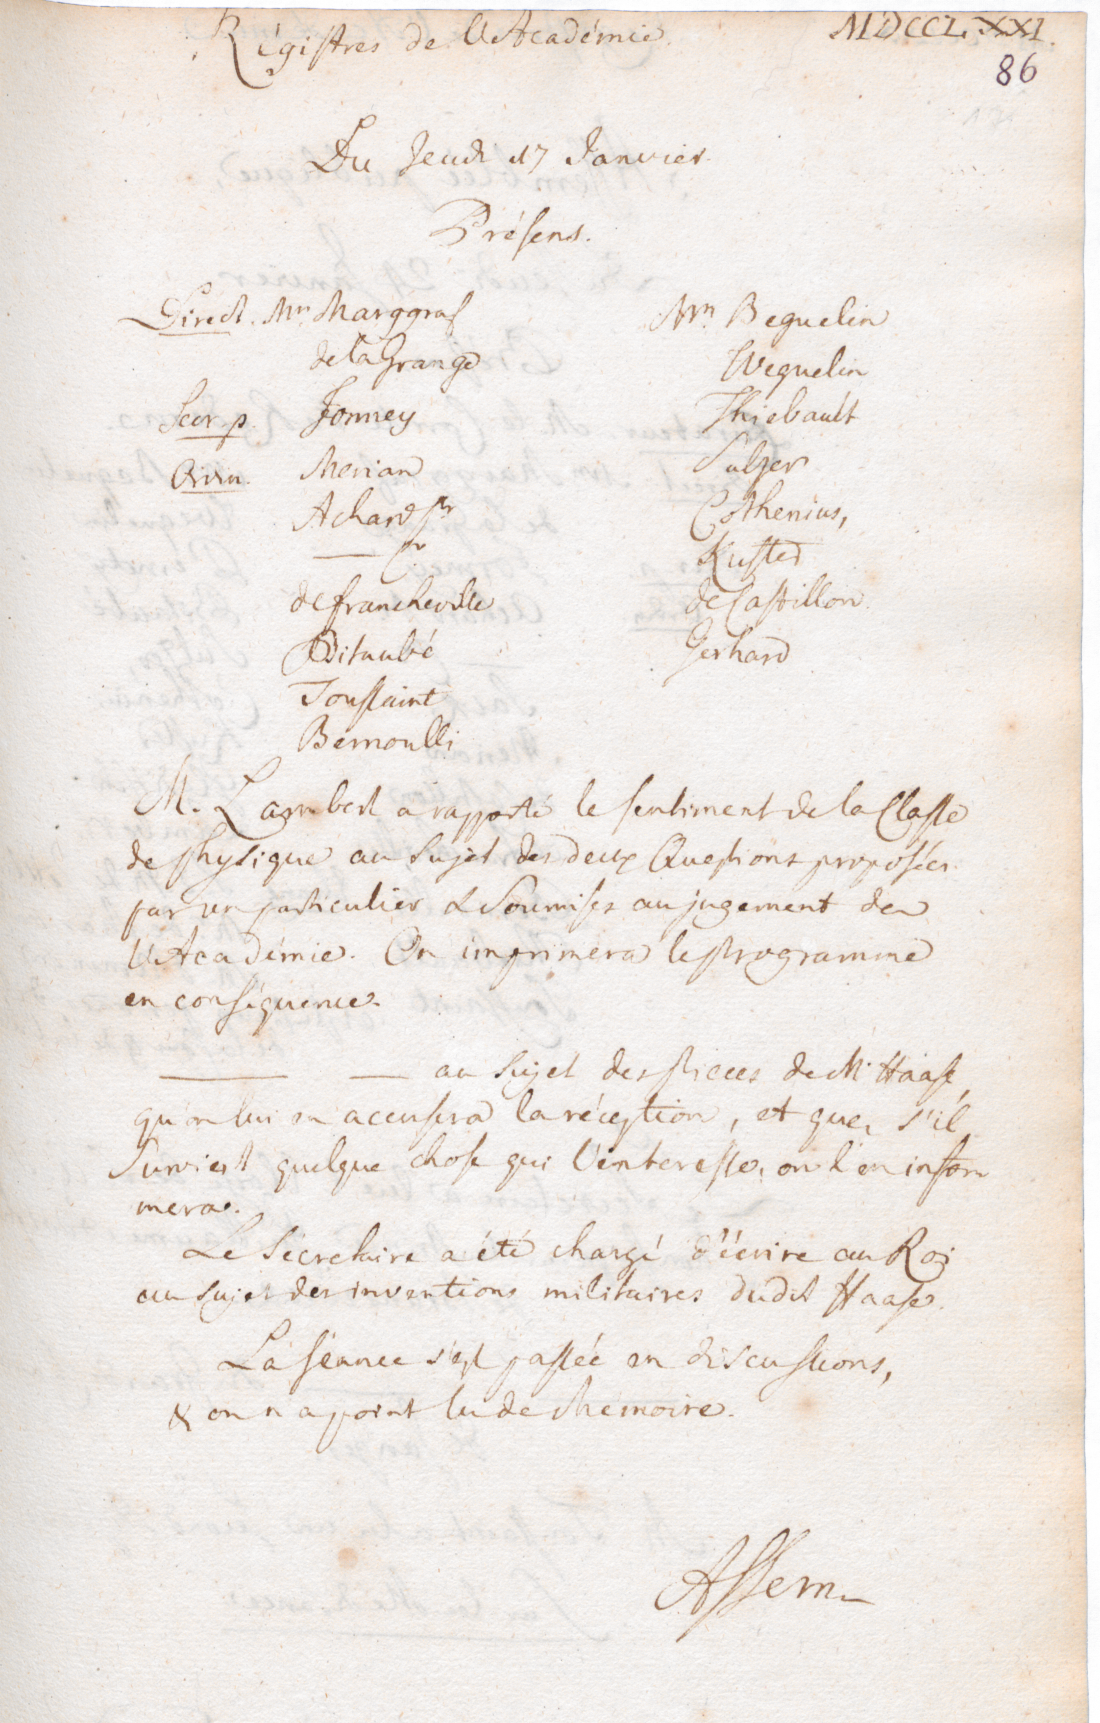 Régistres de l'Académie. MDCCLXXI.
86
Du Jeudi 17 Janvier.
Présens.
Direct. Mrs. Marggraf
de la Grange
Secr. p. Formey
Merian
Achard Sr
— Jr
de Francheville
Bitaubé
Toussaint
Bernoulli
Mrs. Beguelin
Weguelin
Thiebault
Sulzer
Cothenius,
Kuster
de Castillon
Gerhard
M. Lambert a rapporté le sentiment de la Classe
de Physique au sujet des deux Questions proposées
par un particulier & soumises au jugement de
l'Académie. On imprimera le Programme
en conséquence.
— — au sujet des Pieces de M. Haase,
qu'on lui en accusera la réception, et que, s'il
survient quelque chose qui l'interesse, on l'en infor
mera.
Le Sécretaire a été chargé d'écrire au Roi
au sujet des inventions militaires dudit Haase.
La séance s'est passée en discussions,
& on n'a point lu de Mémoire.
Assem